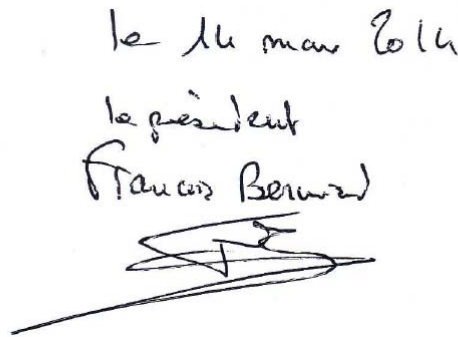 le 14 mars 2014
le président
Francois Bernard